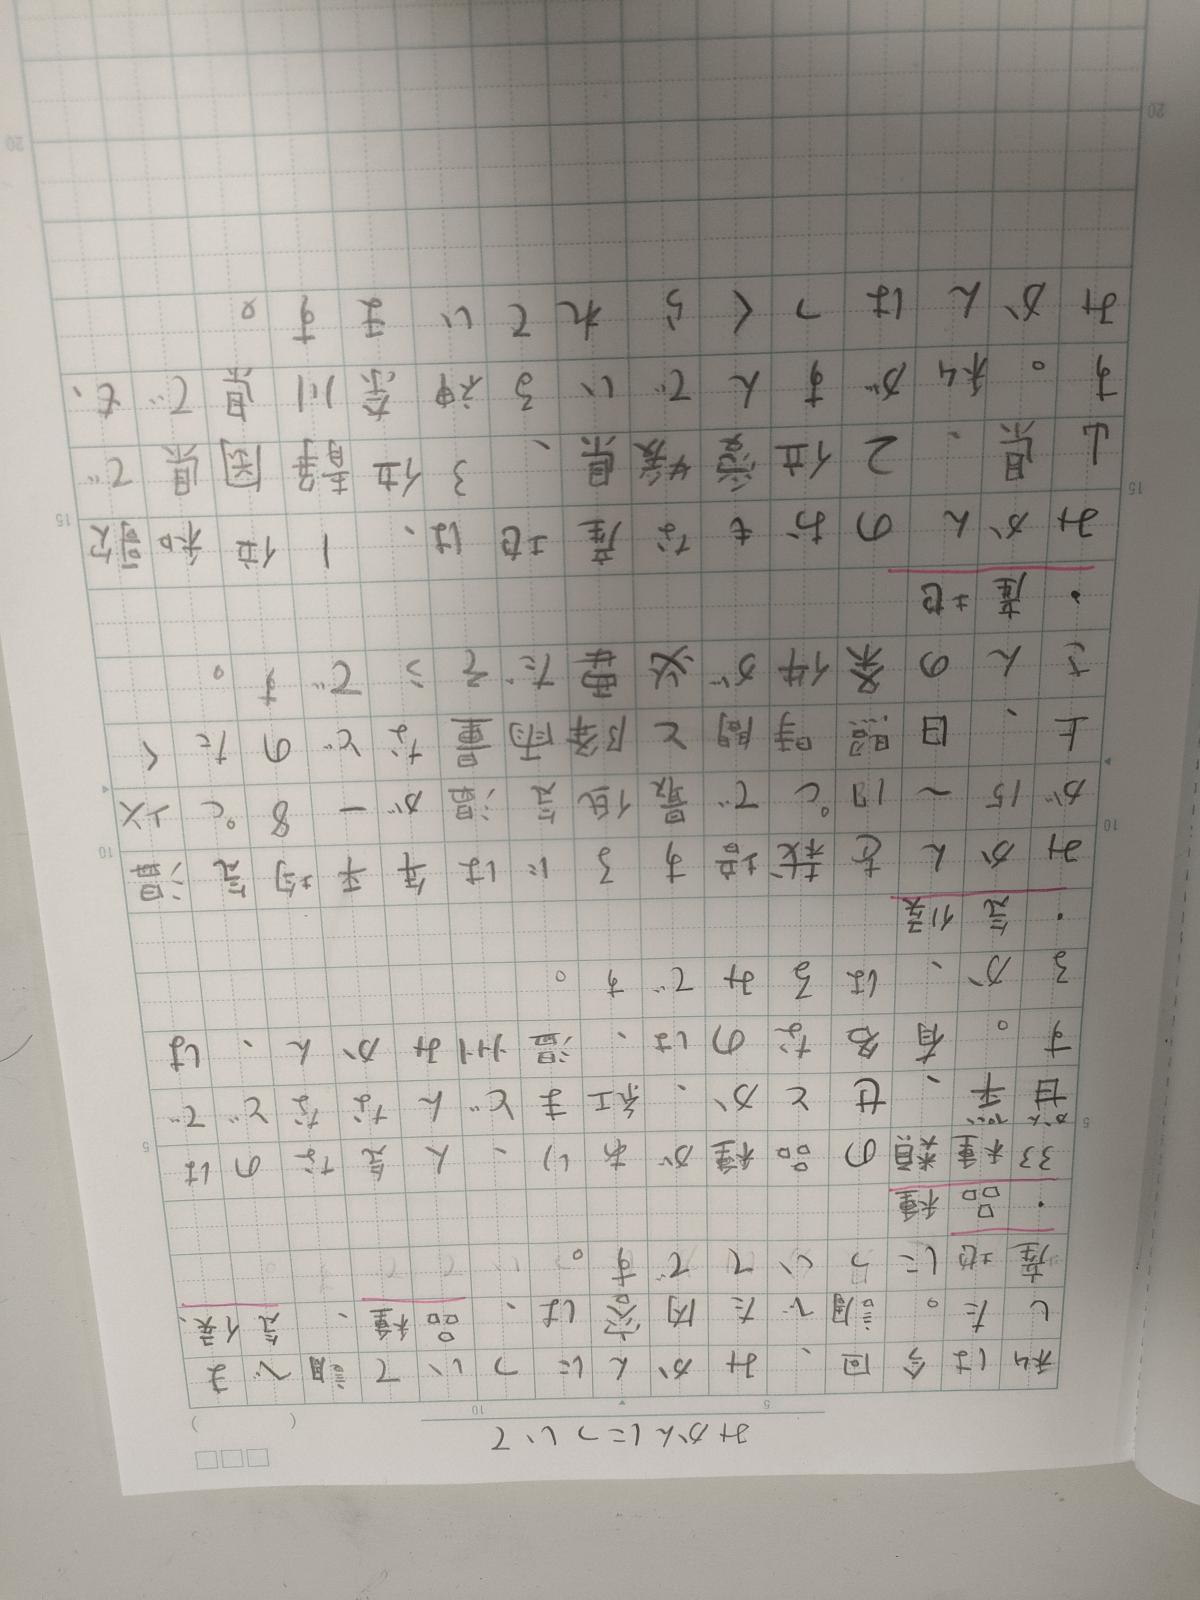 みかんについて
私は今回、みかんについて調べま
した。調べた内容は、品種、気候、
産地についてです。
・品種
33種類の品種があり、人気なのは
かんぺい
甘平、せとか、紅まどんななどで
す。有名なのは、温州みかん、は
るか、はるみです。
・気候
みかんを栽培するには年平均気温
が15〜18℃で最低気温が-8℃以
上、日照時間と降雨量などのたく
さんの条件が必要だそうです。
・産地
みかんのおもな産地は、1位和歌
山県、2位愛媛県、3位静岡県で
す。私がすんでいる神奈川県でも、
みかんはつくられています。